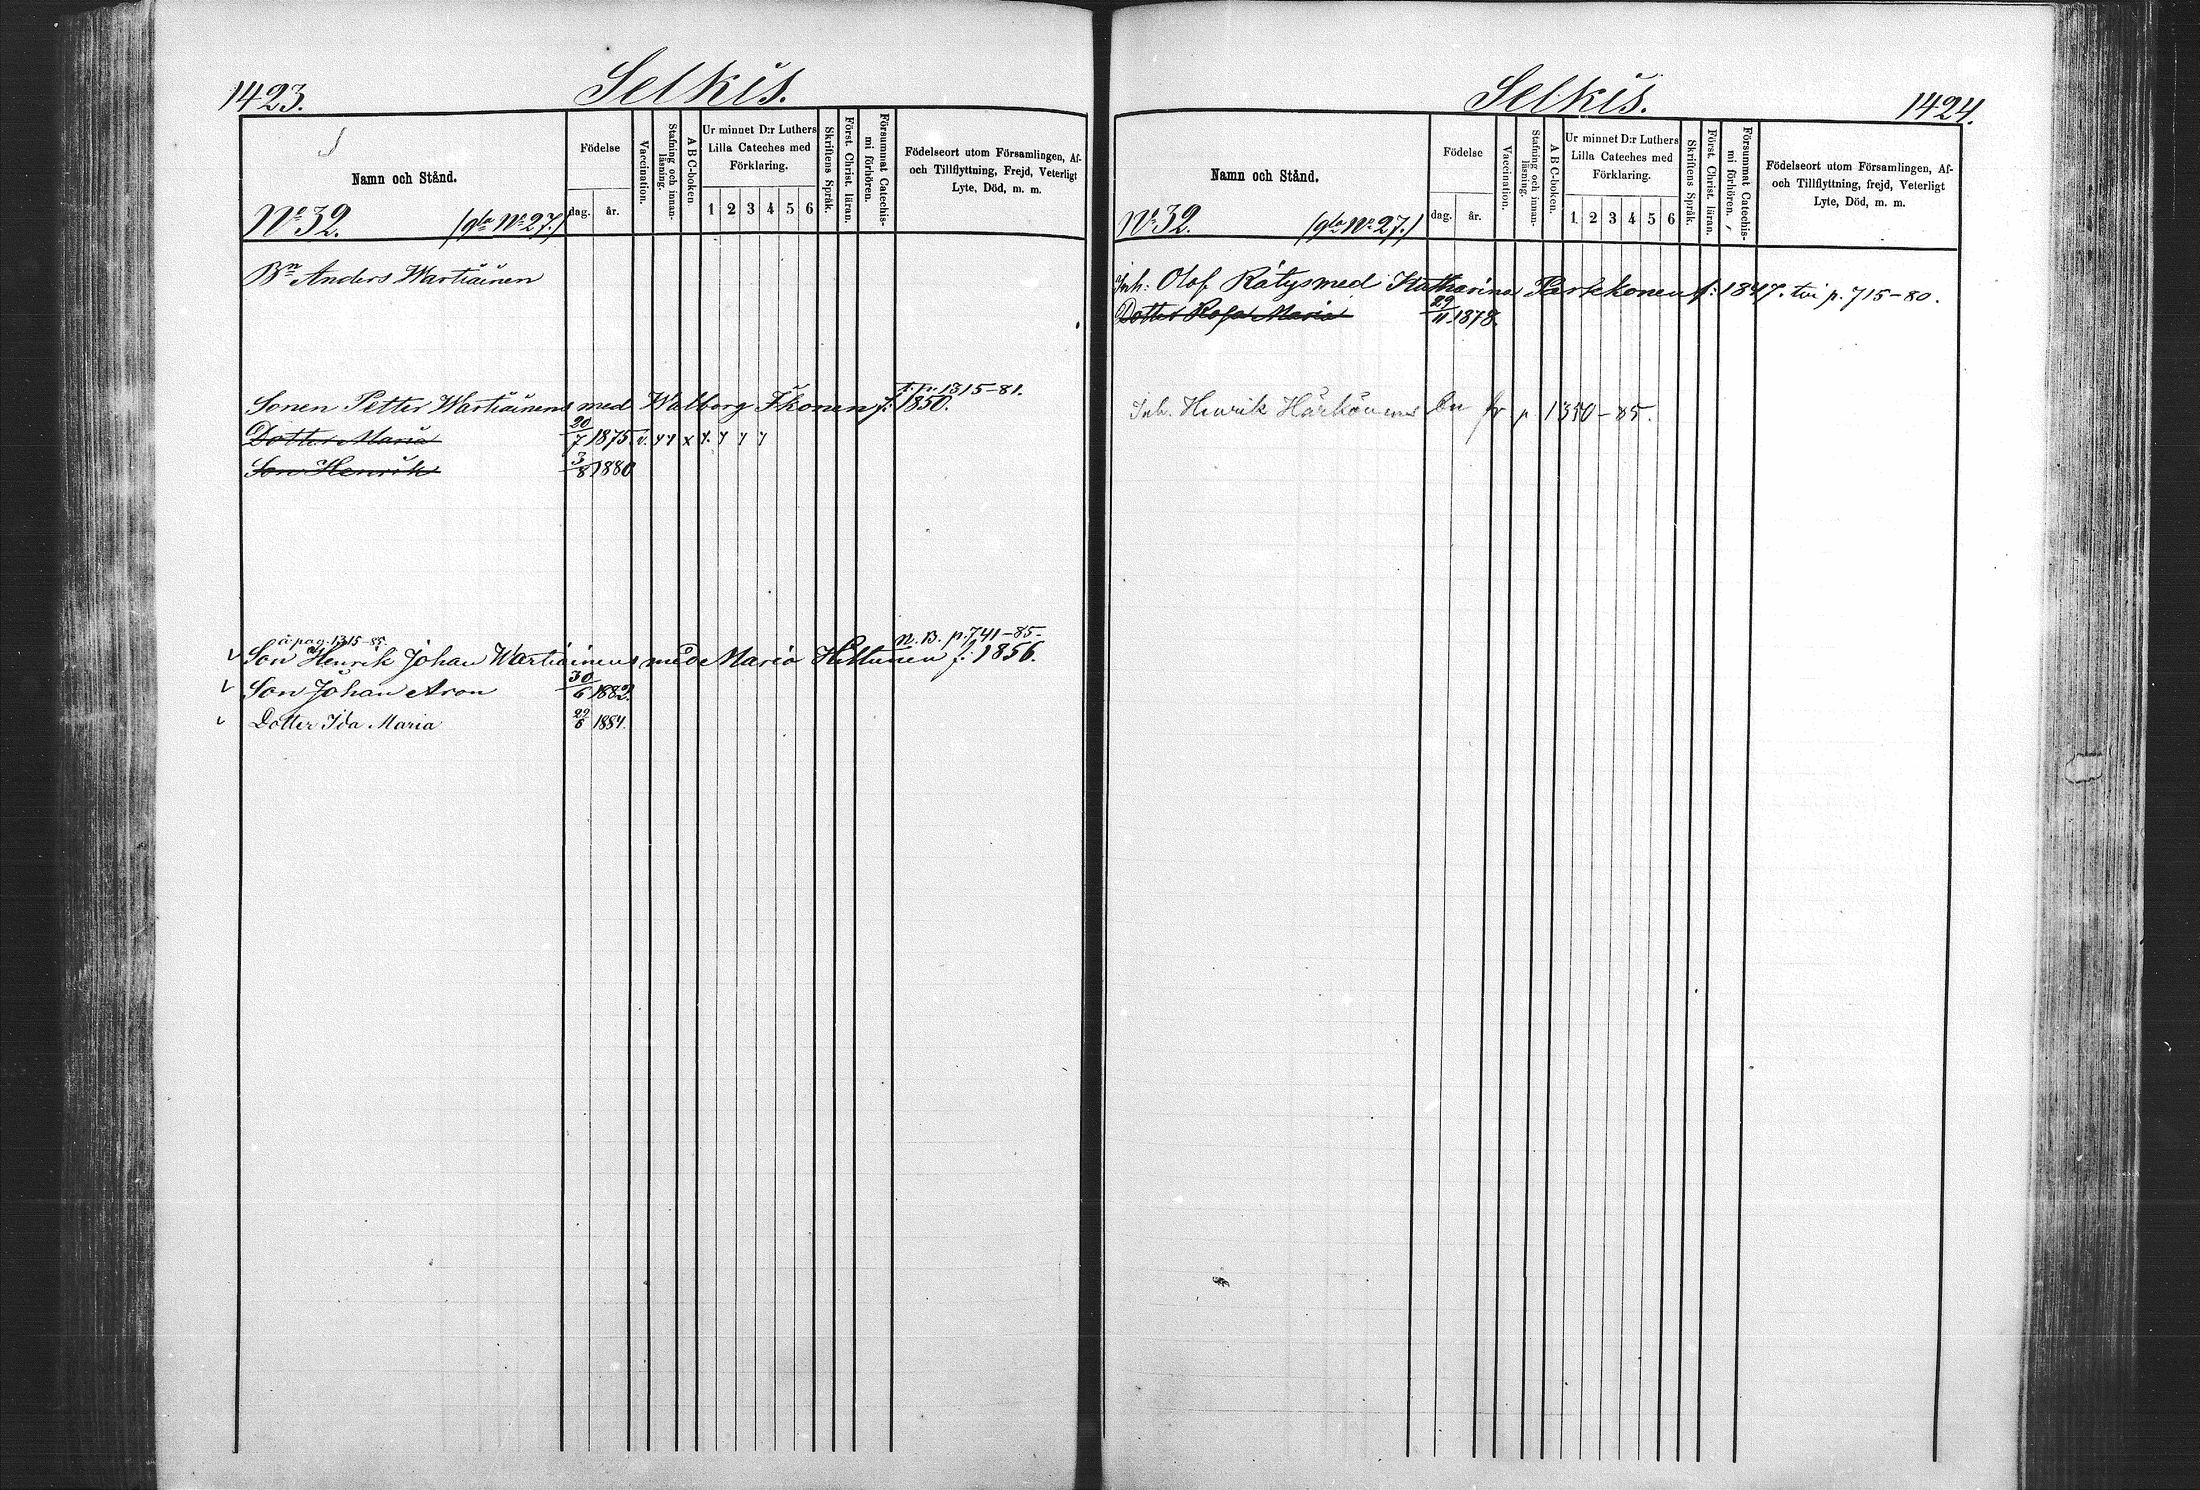 1423.
Selkis.
Namn och Stånd.
Födelse
dag.
år.
Vaccination.
Stafning och innan-
läsning.
A B C-boken
Ur minnet D:r Luthers
Lilla Cateches med
Förklaring.
1 2 3 4 5 6
Skriftens Språk.
Först. Christ. läran.
Försummat Catechis-
mi förhören.
Födelseort utom Församlingen, Af-
och Tillflyttning, Frejd, Veterligt
Lyte, Död, m. m.
No 32. (gla No 27.)
Bn Anders Wartiainen
t. p. 1315-81.
Sonen Petter Wartiainens med Walborg Ikonen f. 1850.
Dotter Maria 20/7 1875. v.
Son Henrik 3/8 1880
à pag. 1315-85
n. B. p. 741-85-
Son Henrik Johan Wartiainens med Maria Hiltunen f. 1856.
Son Johan Aron 30/6 1882.
Dotter Ida Maria 22/6 1884.
Selkis.
1424.
Namn och Stånd.
Födelse
dag.
år.
Vaccination.
Stafning och innan-
läsning.
A B C-boken.
Ur minnet D:r Luthers
Lilla Cateches med
Förklaring.
1 2 3 4 5 6
Skriftens Språk.
Först. Christ. läran.
Försummat Catechis-
mi förhören.
Födelseort utom Församlingen, Af-
och Tillflyttning, frejd, Veterligt
Lyte, Död, m. m.
No 32. (gla No 27.)
Inh: Olof Rätys med Katharina Parkkonen f: 1847. p. 715-80.
Dotter Rosa Maria 29/11 1878.
Inh. Henrik Härkönens fr p 1350-85.